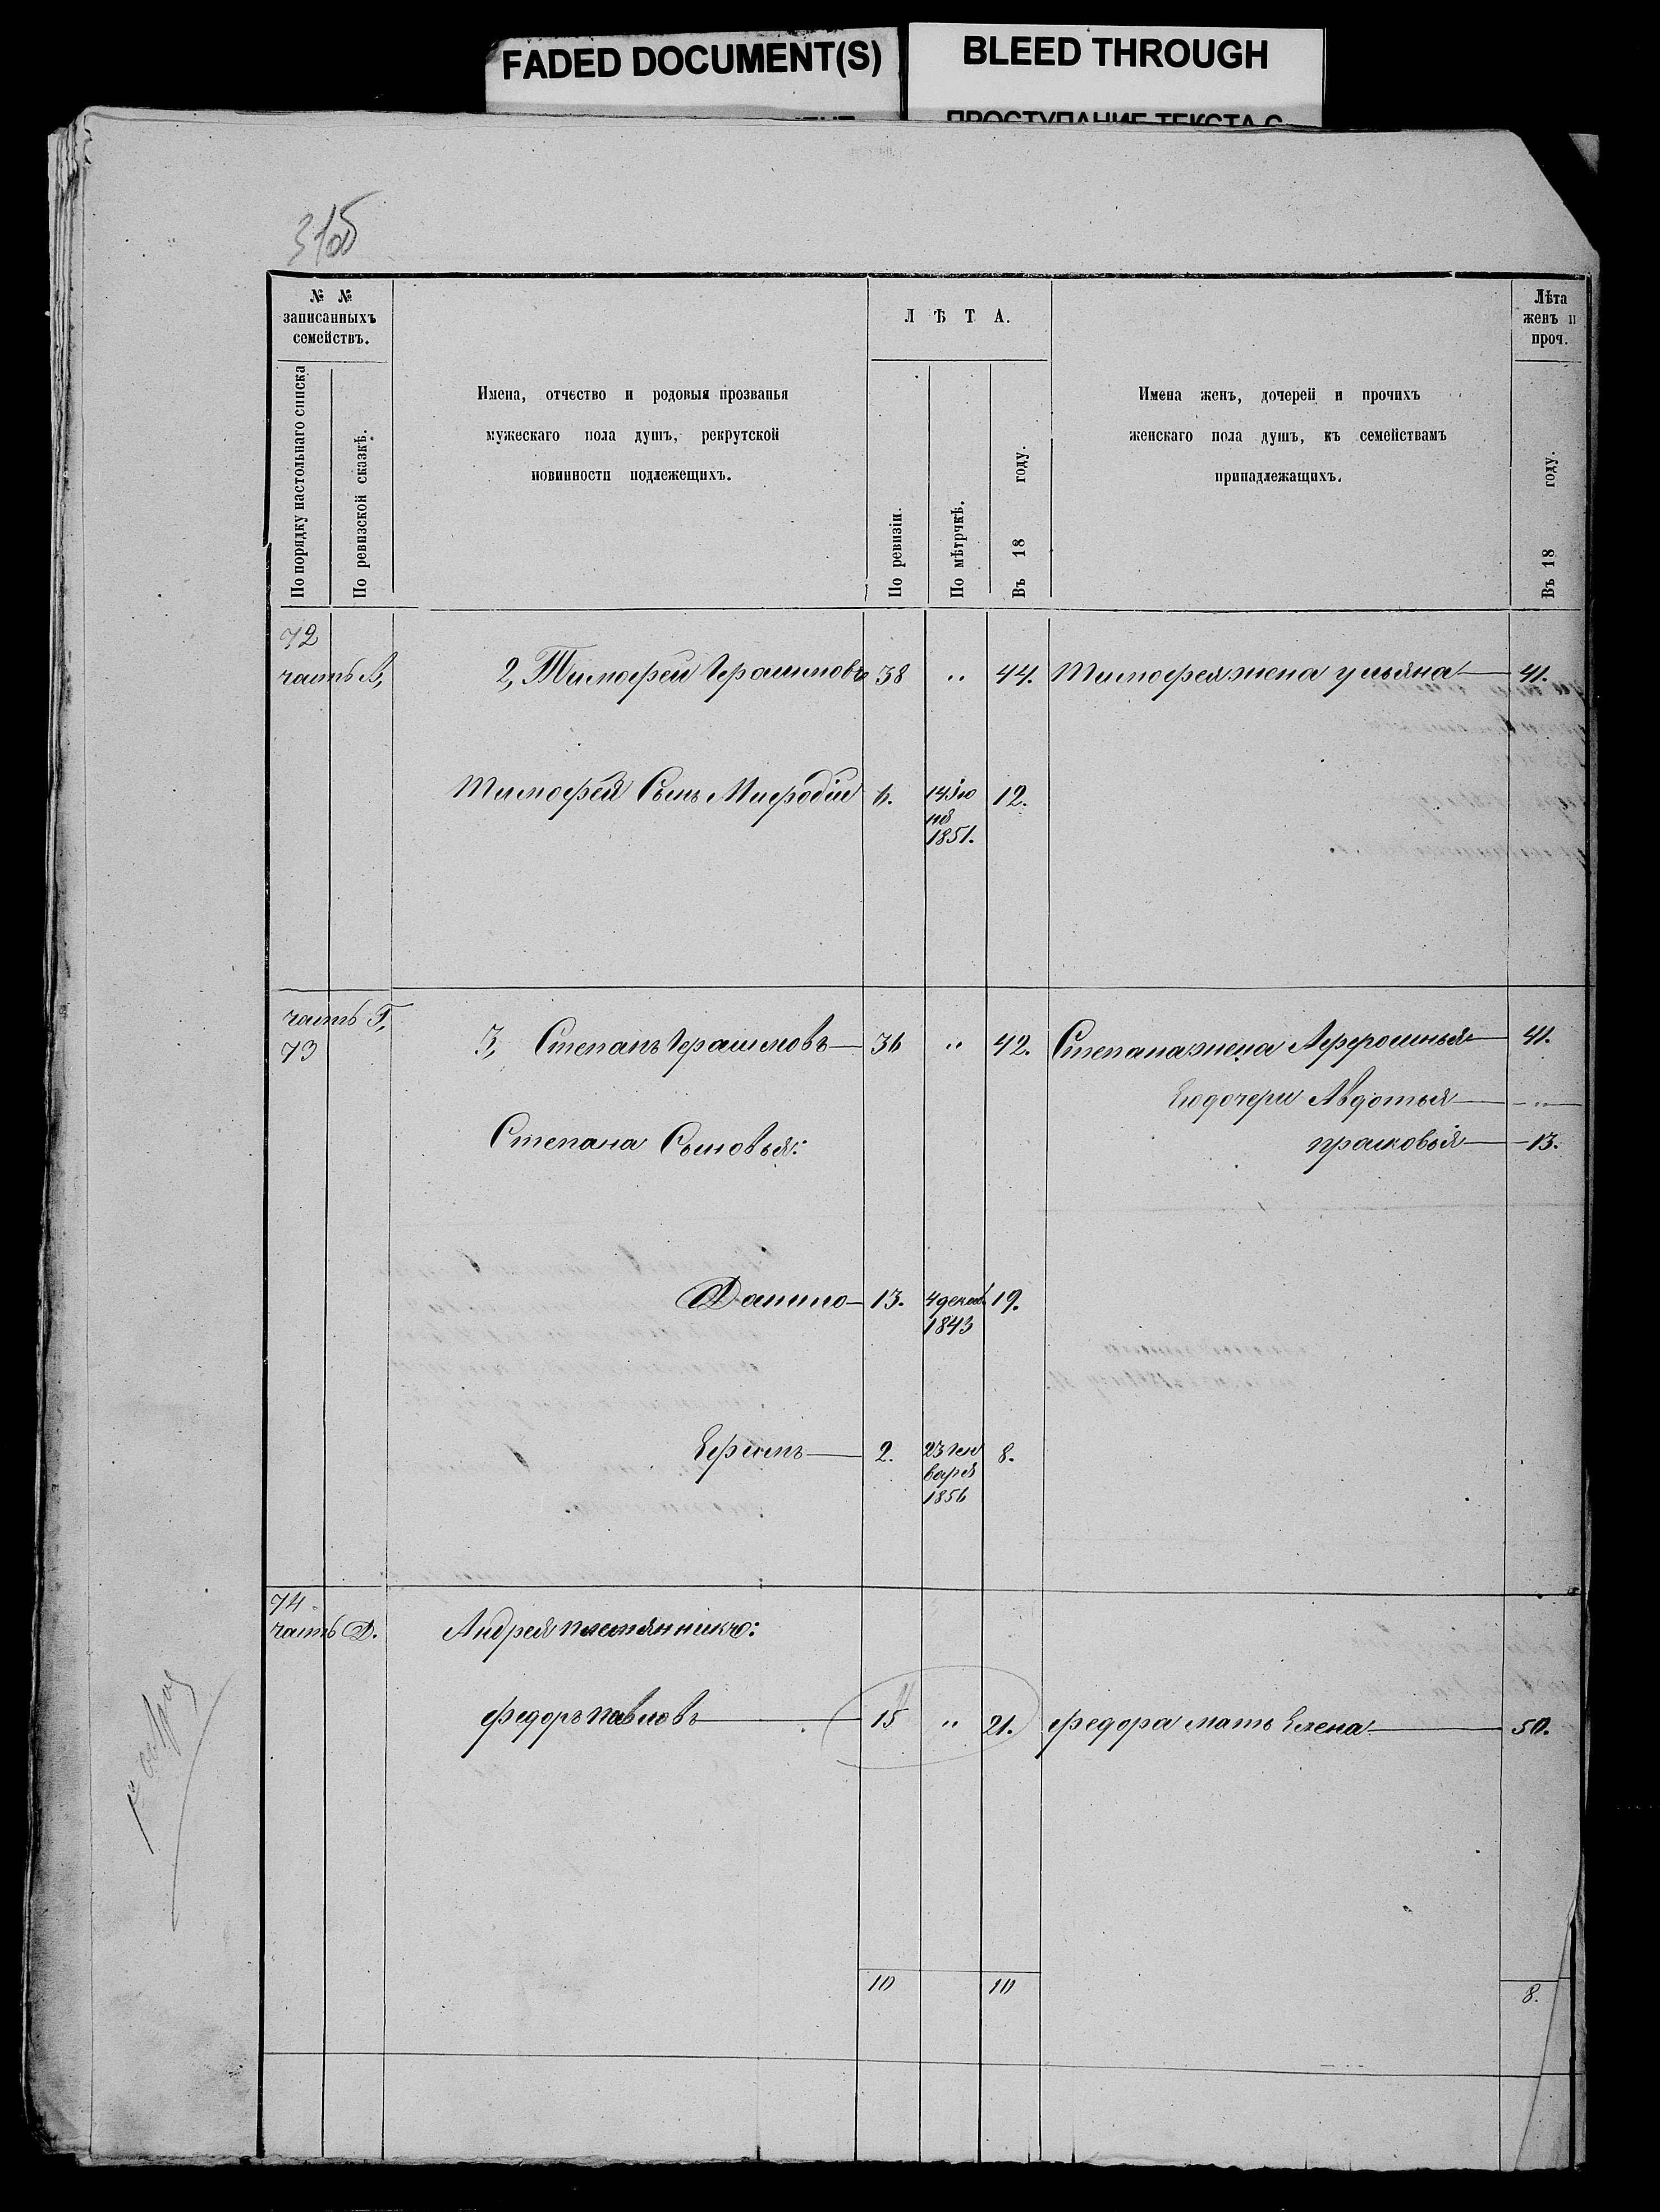 FADED DOCUMENT(S)
BLEED THROUGH
ПРОСТУПАНИЕ ТЕКСТА С
31об
№ №
записанныхъ
семействъ.
По порядку настольнаго списка
По ревизской сказкѣ.
Имена, отчество и родовыя прозванья
мужескаго пола душъ, рекрутской
повинности подлежещихъ.
Л Ѣ Т А.
По ревизіи.
По мѣтрчкѣ.
Въ 18 году.
Имена женъ, дочерей и прочихъ
женскаго пола душъ, къ семействамъ
принадлежащихъ.
Лѣта
женъ и
проч.
Въ 18 году.
72
часть В, 2, Тимофей Герасимовъ 38 " 44. Тимофея жена ульяна 41.
Тимофея Сынъ Мифодій 6. 14 Iю 12.
ня
1851.
часть Г,
73 3, Степанъ Герасимовъ 36 " 42. Степана жена Афросинья 41.
Ево дочери Авдотья "
Степана Сыновья: прасковья 13.
Данило 13. 4 декаб 19.
1843
Ефимъ 2. 23 Ген 8.
варя
1856
74
часть Д. Андрея племянникъ:
федоръ павловъ 15 " 21. федора мать Елена 50.
10 10 8.